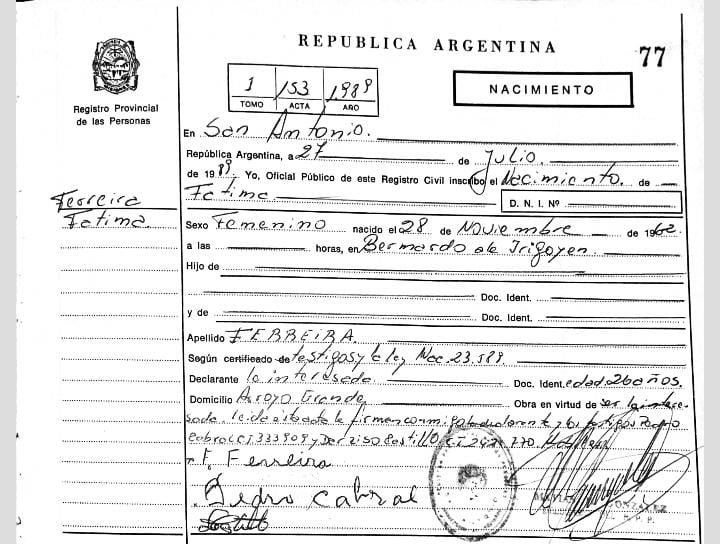 REPUBLICA ARGENTINA
77
Registro Provincial
de las Personas
1 / 153 / 1989
TOMO ACTA AÑO
NACIMIENTO
En San Antonio.
República Argentina, a 27 de Julio.
de 1989. Yo, Oficial Público de este Registro Civil inscribo el Nacimiento. de
Ferreira
Fatima.
Fatima
D. N. I. Nº
Sexo Femenino nacido el 28 de Noviembre de 1962
a las horas, en Bernardo de Irigoyen.
Hijo de
Doc. Ident.
y de Doc. Ident.
Apellido FERREIRA.
Según certificado de testigos y la ley Nac. 23.
Declarante la interesada Doc. Ident. edad 26 años.
Domicilio Arroyo Grande Obra en virtud de ser la intere-
sada. Leida el acta la firman conmigo
Cabral CI 333909 y
F. Ferreira
Pedro Cabral